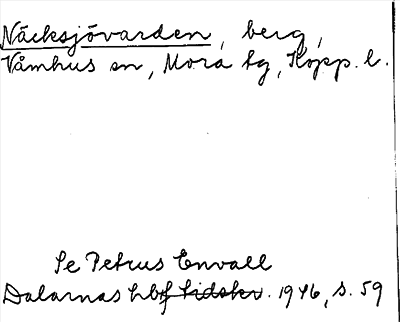 Näcksjövarden, berg,
Våmhus sn, Mora tg, Kopp. l.
Se Petrus Envall
Dalarnas hbf tidskr. 1946, s. 59